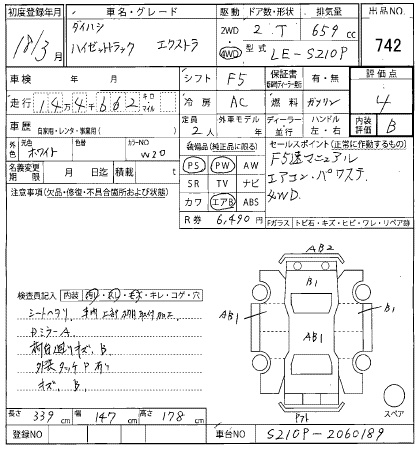 初度登録年月 車名・グレード 駆動 ドア数・形状 排気量 出品NO.
18/3月 ダイハツ ハイゼットトラック エクストラ 2WD 4WD 2 T 659 cc 742
型式 LE-S210P
車検 年 月 シフト F5 保証書 有・無 評価点
走行 14万4千662 キロ マイル 冷房 AC 燃料 ガソリン 4
車歴 自家用・レンタ・事業用( ) 定員 2人 外車モデル 年 ディーラー 並行 ハンドル 左・右 内装評価 B
外色 元色 ホワイト 色替 カラーNO W20
装備品(純正品に限る) セールスポイント(正常に作動するもの)
名義変更期限 月 日迄 積載 t
PS PW AW
SR TV ナビ
カワ エアB ABS
R券 6,490円
F5速マニュアル
エアコン・パワステ
4WD
注意事項(欠品・修復・不具合箇所および状態)
Fガラス トビ石・キズ・ヒビ・ワレ・リペア跡
検査員記入 内装 キレ・コゲ・穴
シートヘタリ
DミラーA
キズ、B
AB2
B1
AB1
AB1
B1
スペア
長さ 339cm 幅 147cm 高さ 178cm
登録NO 車台NO S210P-2060189